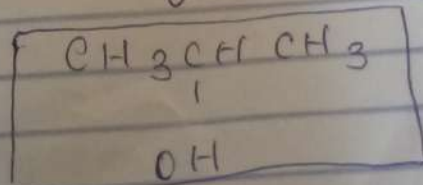 CH3CH CH3
|
OH